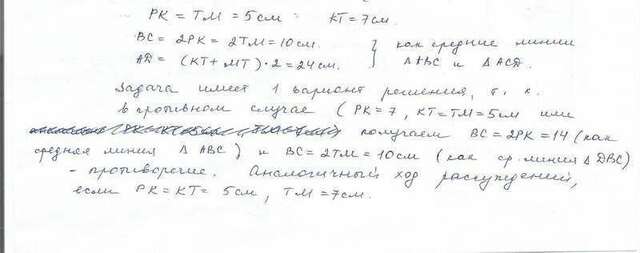 PK = TM = 5см   KT = 7см.
BC = 2PK = 2TM = 10см. } как средние линии
AD = (KT + MT) · 2 = 24см. } Δ ABC и Δ ACD.
Задача имеет 1 вариант решения, т. к.
в противном случае (PK = 7, KT = TM = 5см или
получаем BC = 2PK = 14 (как
средняя линия Δ ABC) и BC = 2TM = 10см (как ср. линия Δ DBC)
- противоречие. Аналогичный ход рассуждений,
если PK = KT = 5см, TM = 7см.